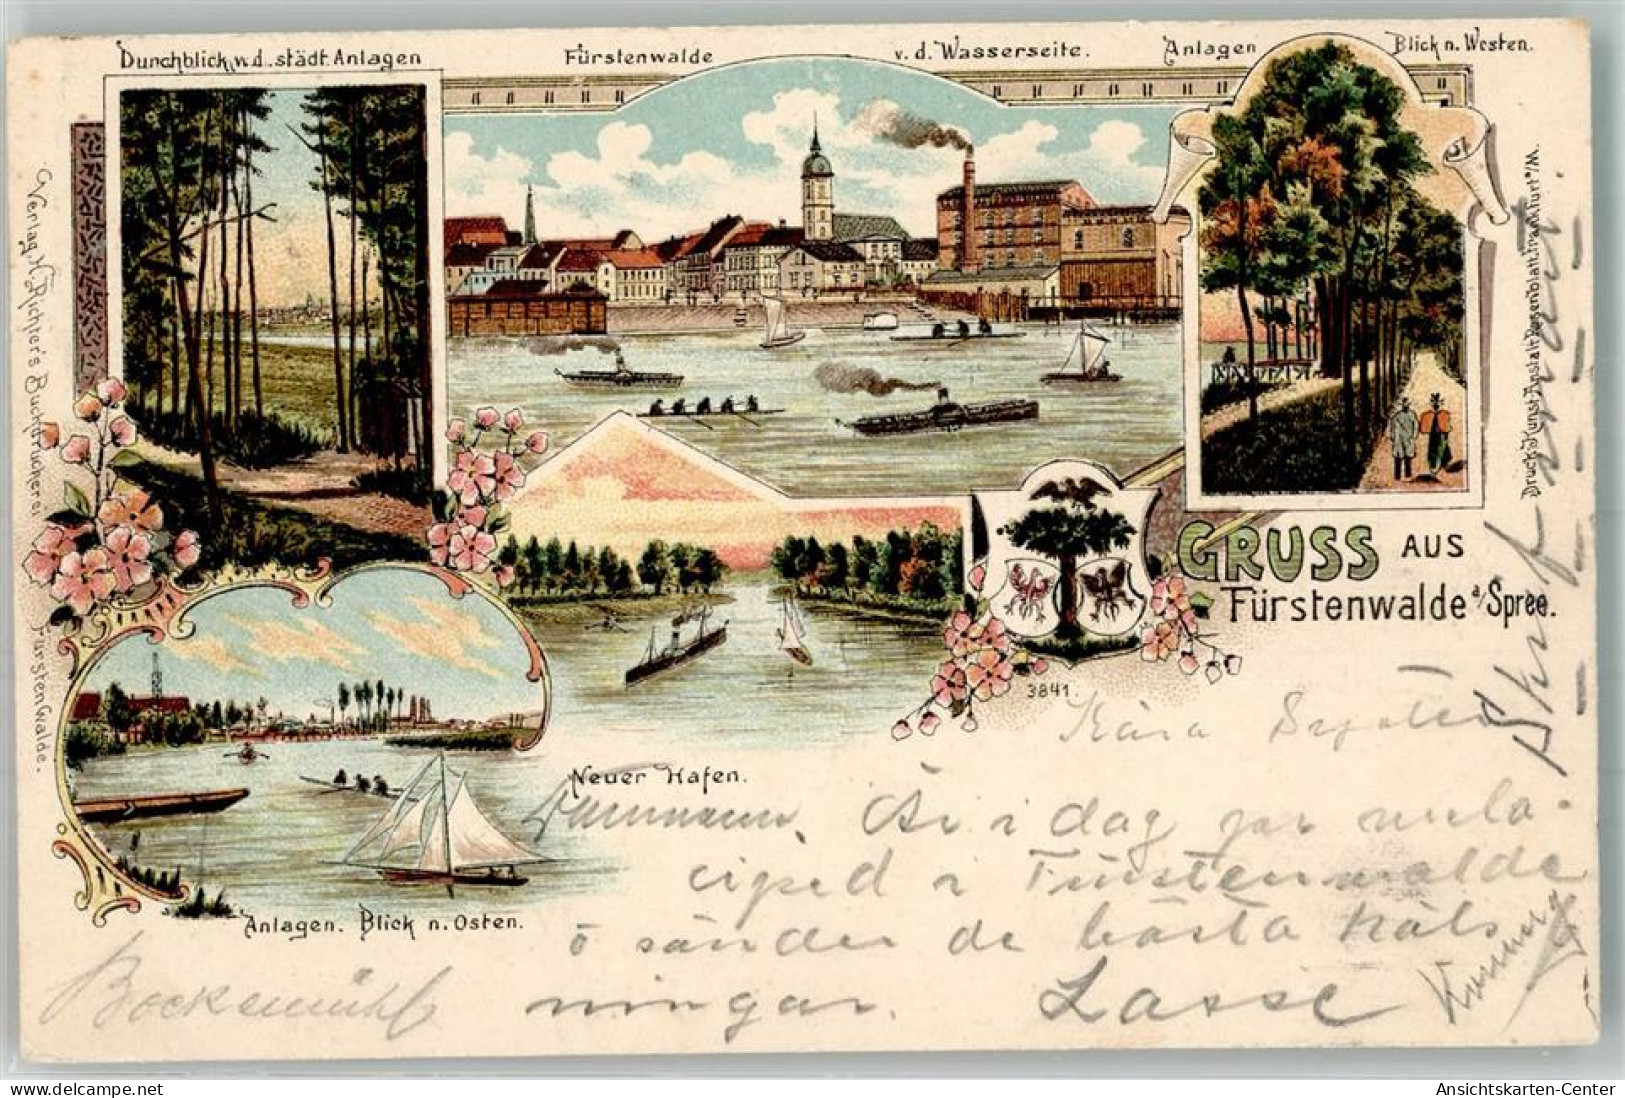 Durchblick v. d. städt. Anlagen
Fürstenwalde v. d. Wasserseite.
Anlagen Blick n. Westen.
Verlag, H. Richter's Buchdruckerei Fürstenwalde.
Druck. Kunst-Anstalt Rosenblatt. Frankfurt a/M.
GRUSS AUS
Fürstenwalde a/Spree.
3841.
Neuer Hafen.
Anlagen. Blick n. Osten.
Kära Syster
Är i dag på vela-
ciped i Fürstenwalde
o sänder de bästa häls
ningar. Lasse
Bockemühl